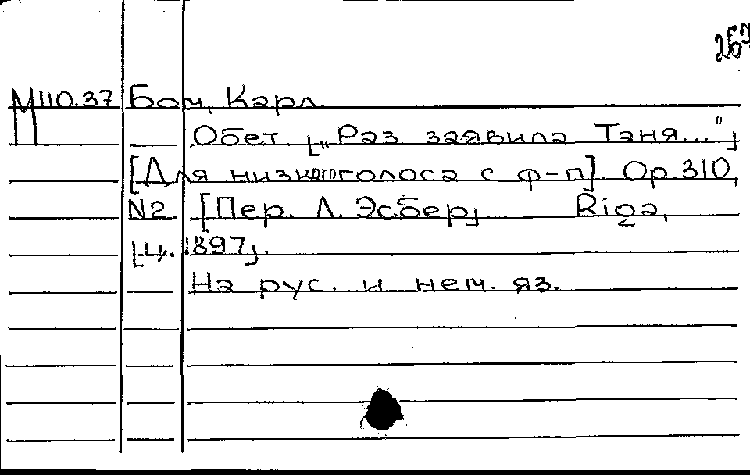 М110.37 Бом, Карл
Обет. [„Раз заявила Таня..."]
[Для низкого голоса с ф-п]. Op. 310,
N2. [Пер. Л. Эсбер]. Riga,
[ц. 1897].
На рус. и нем. яз.